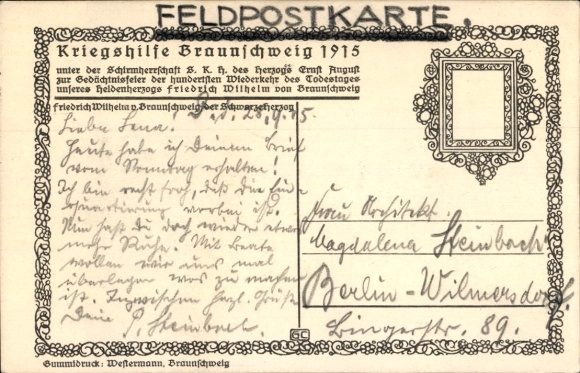 FELDPOSTKARTE.
Kriegshilfe Braunschweig 1915
unter der Schirmherrschaft S. K. H. des Herzogs Ernst August
zur Gedächtnisfeier der hundertsten Wiederkehr des Todestages
unseres Heldenherzogs Friedrich Wilhelm von Braunschweig
Friedrich Wilhelm v. Braunschweig der Schwarze Herzog
28.9.15.
Liebe Lena!
Heute habe ich Deinen Brief
vom Sonntag erhalten!
Ich bin recht froh, daß die Ein-
quartierung vorbei ist.
Nun hast du doch wieder etwas
mehr Ruhe. Mit
wollen wir uns mal
überlegen was zu machen
ist. Inzwischen herzl. Grüße
Dein P. Steinbach.
Frau Architekt
Magdalena Steinbach
Berlin-Wilmersdorf.
Bingerstr. 89.
GC
Gummidruck: Westermann, Braunschweig